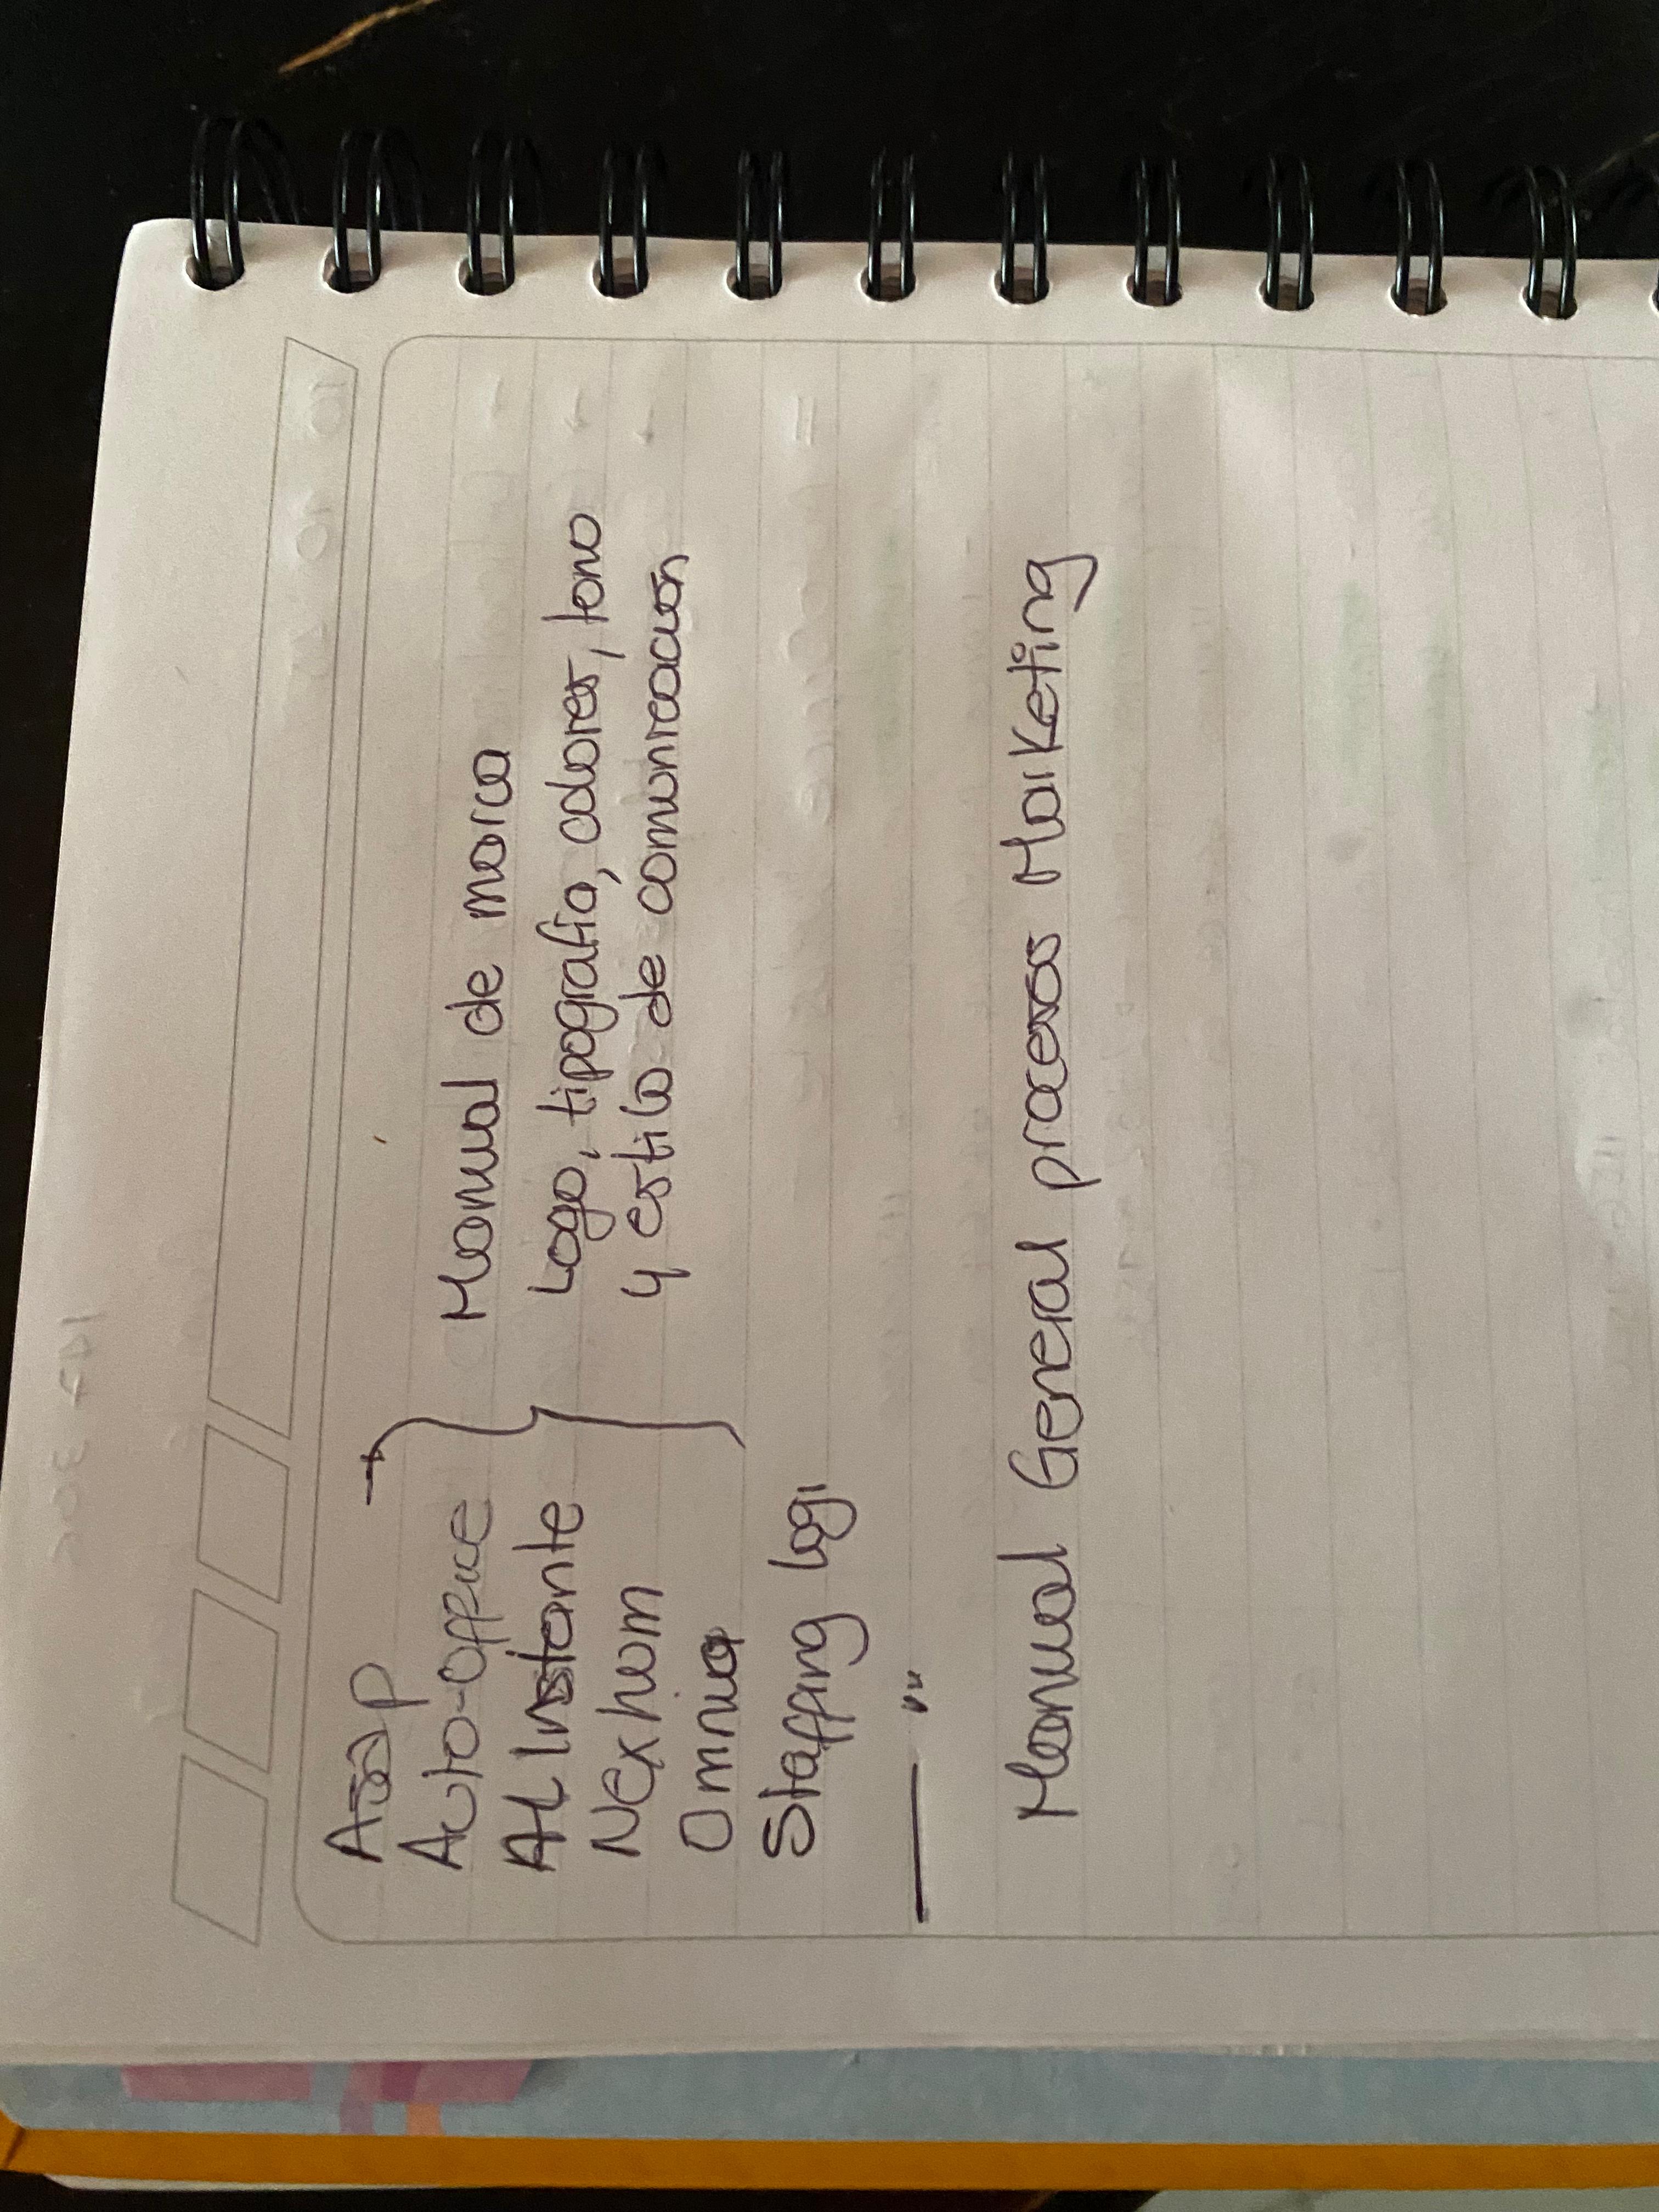 Asap →
Auto-Office
AL Instante
Nexhum
Omnia
Staffing logi
Manual de marca
Logo, tipografia, colores, tono
y estilo de comunicación
Manual General procesos Marketing